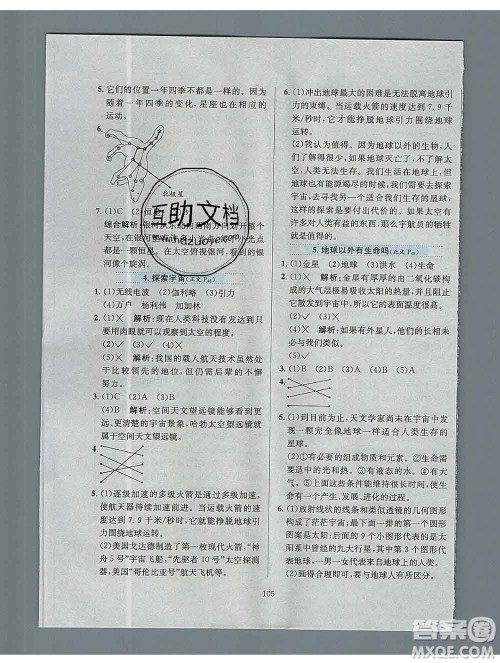 5. 它们的位置一年四季不都是一样的。因为
随着一年四季的变化，星座也在相应的
运动。
6.
北极星
7. (1)C (2)
综合解析:
空，在
颗星
旋涡。
互助文档
www.hdzuoye.com
4. 探索宇宙(正文 P
1. (1)无线电波 (2)伽利略 (3)引力
(4)万户 杨利伟 加加林
2. (1)✕ 解析:现在人类科技没有发达到
只要用肉眼就可以观察到太空的程度。
(2)✓
(3)✕ 解析:我国的载人航天技术虽然处
于比较领先的地位，但还没有到领先世
界的程度，还需后辈的不懈努力。
(4)✓ (5)✓
3. (1)C (2)A (3)B
(4)B 解析:空间天文望远镜能看到更
远、更清楚的宇宙景象，哈勃太空望远镜
属于空间天文望远镜。
4.
5. (1)逐级加速的多级火箭是通过逐级加速，
使航天器持续加速前进的。当运载火箭的
速度达到7.9千米/秒时，它就能挣脱地球引
力围绕地球运转。
(2)美国戈达德制造了第一枚现代火箭，“神
舟5号”宇宙飞船，“先驱者10号”太空探测
器，美国“哥伦比亚号”航天飞机等。
6. (1)冲出地球最大的困难是无法脱离地球引
力的束缚。当运载火箭的速度达到7.9千
米/秒时，它才能挣脱地球引力围绕地球
运转。
(2)我认为值得。因为地球以外的生物，人
们了解得很少，如果地球灭亡了，不了解其
他星球的情况，人类也会灭亡。还有，地球
能源有可能用尽时，如果探索到其他适合生
存的星球，人类还可以在其他星球上生存。
所以，我觉得为了探索宇宙，宇航员的牺牲
就是值得的。
5. 地球以外有生命吗(正文 P
1. (1)金星 (2)地球 (3)洪水 (4)生命
2. (1)✕ 解析:金星有厚厚的由二氧化碳构
成的大气层极易吸收太阳的热量，并且阻止
它散发出去，所以表面温度很高。
(2)✓ (3)✓
(4)✕ 解析:如果有外星人，他们不一定
和我们类似。
(5)✓
3. (1)B (2)B (3)A
4.
5. (1)到目前为止，天文学家尚未在宇宙中发
现一颗完全像地球一样适合人类生存的
星球。
(2)①有必要的组成物质和元素。②有适宜
生存的外界条件。③有液态的水。④大气
层。⑤上面这些条件能维持一段很长的时
间，供生命发生、发展、进化。
6. (1)放射状的线条和主体图形以几何图形构
成了茫茫宇宙，最前面的第一个圆形
图案是太阳，剩下的圆形图案就是太阳
系中的九大行星，其中第三个图形代表
地球，一男一女代表了有生命存在。
(2)画得合理即可，要与地球人有所区分。
105
答案圈
MXQE.COM